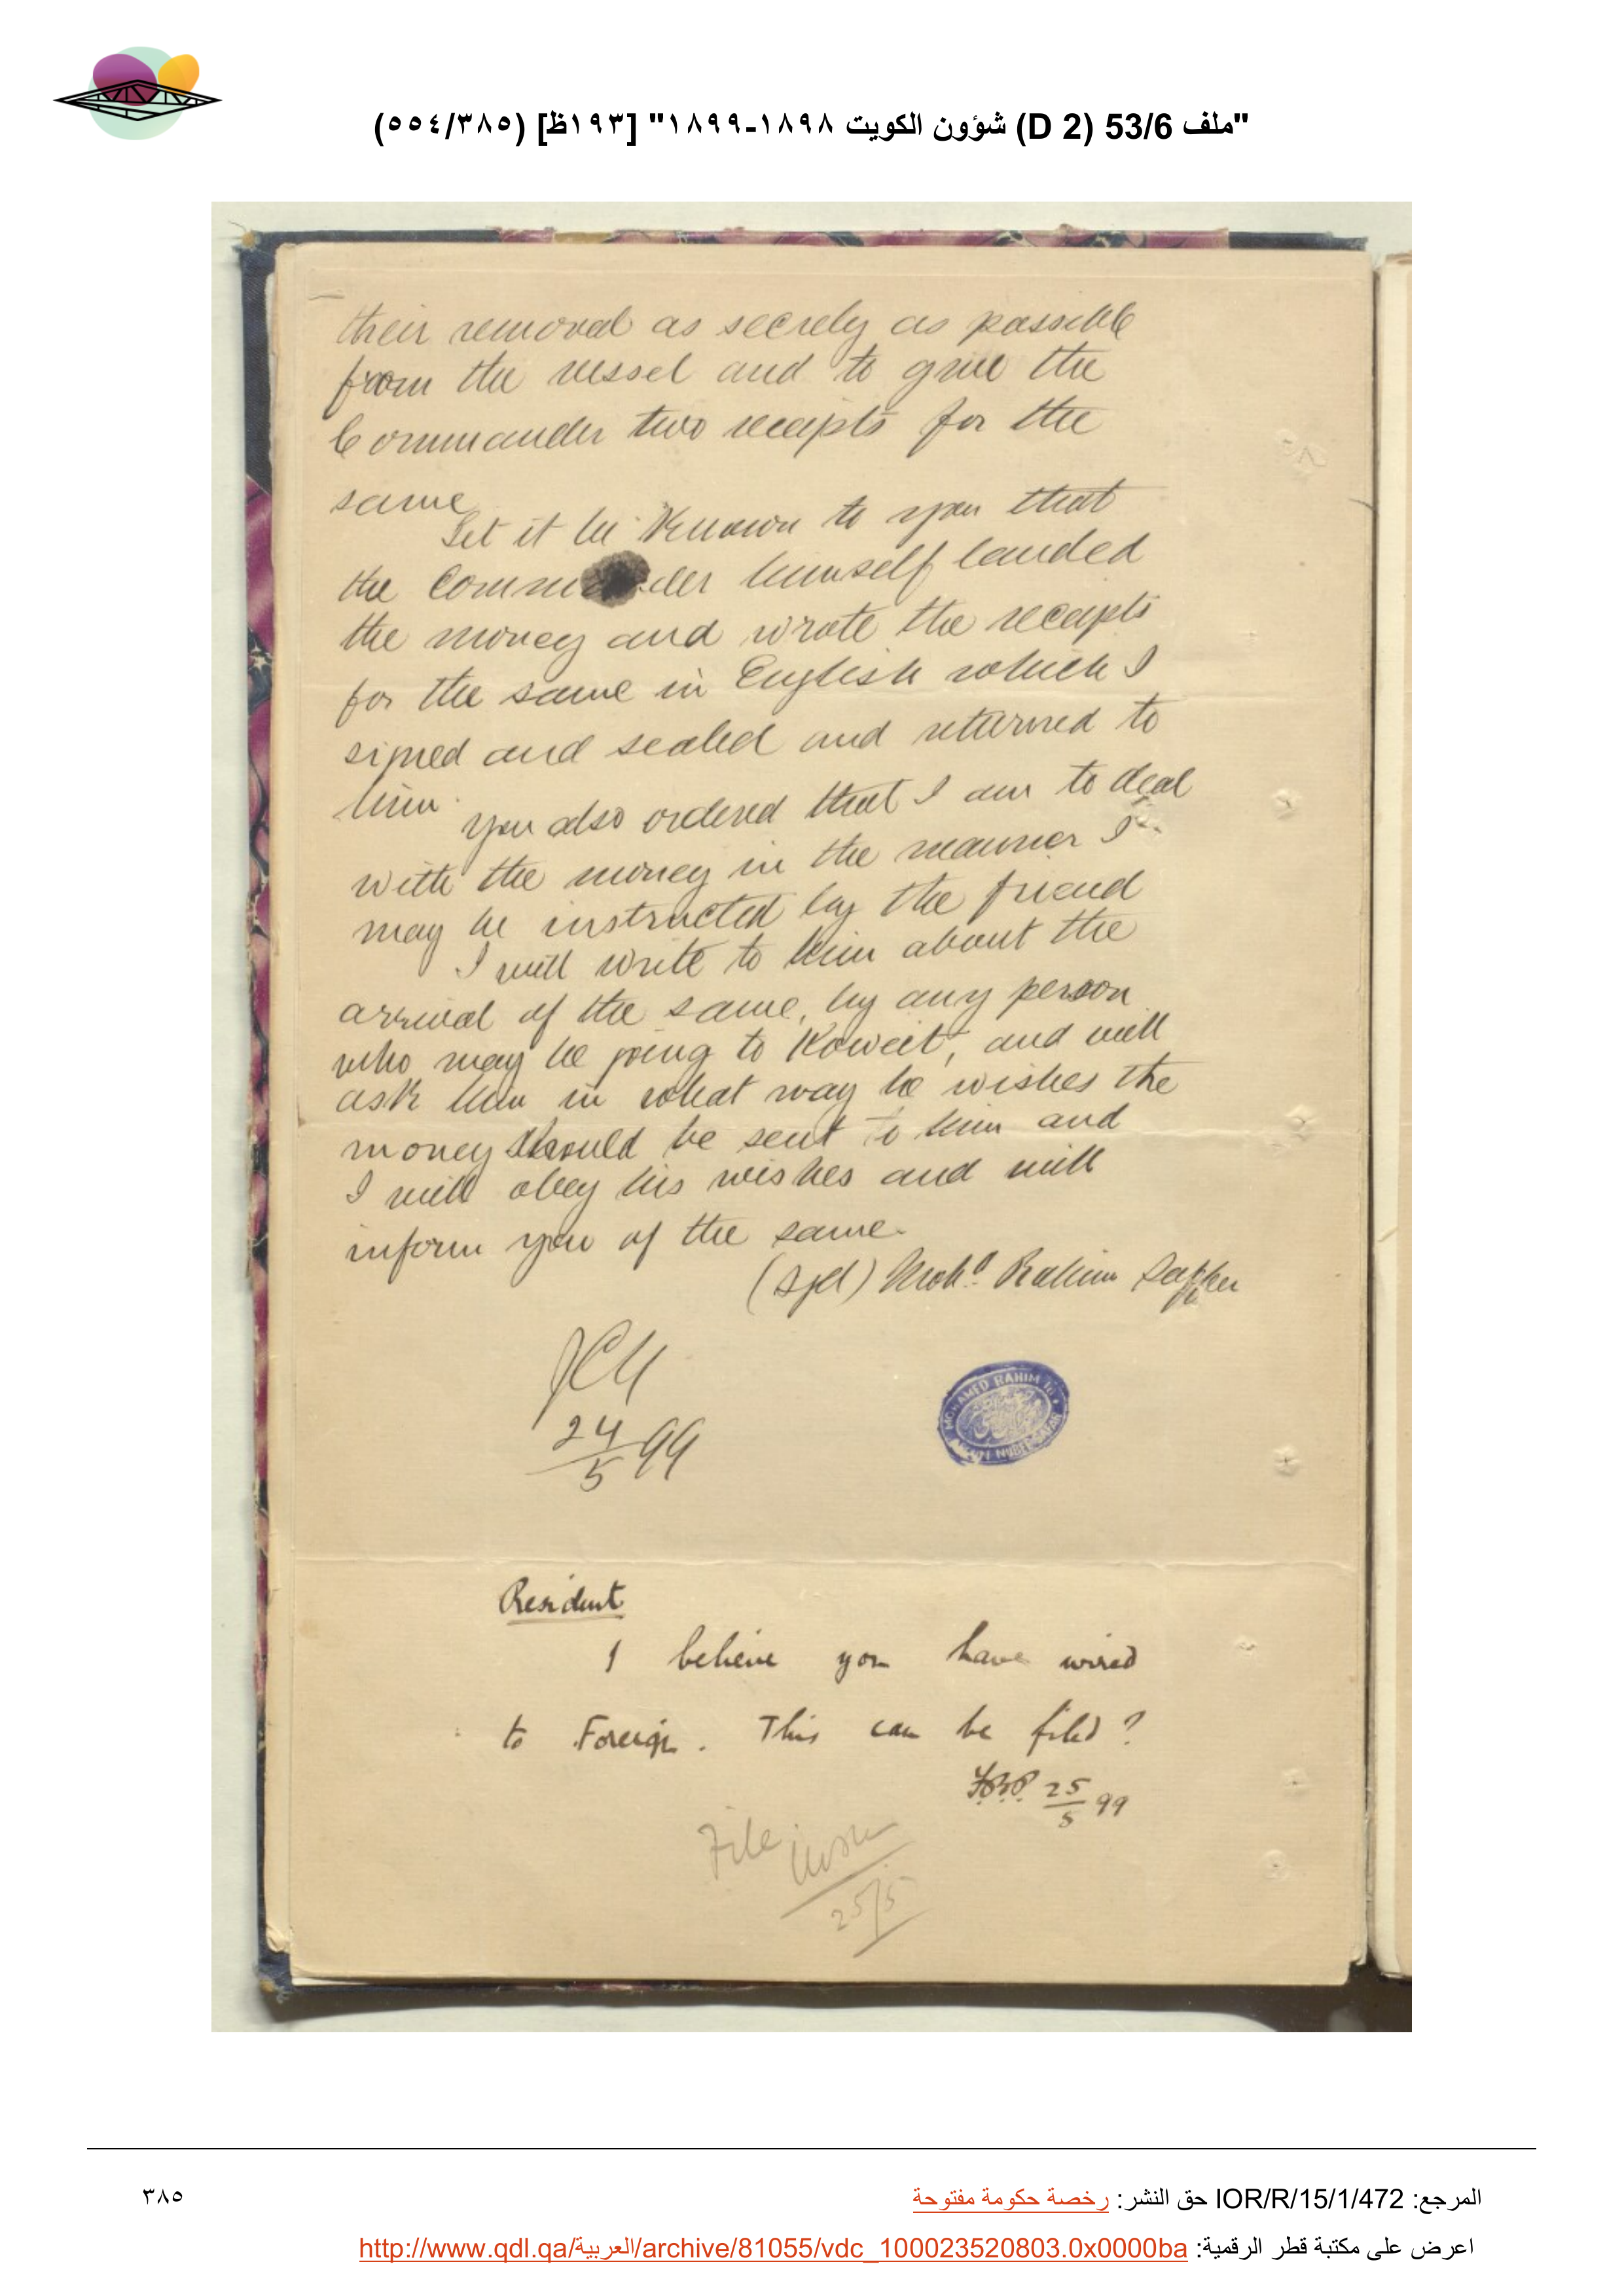 "ملف 53/6 (D 2) شؤون الكويت ١٨٩٨-١٨٩٩" [١٩٣ظ] (٥٥٤/٣٨٥)
their removal as secrely as possible
from the vessel and to give the
Commander two receipts for the
same
Let it be known to you that
the Commander himself landed
the money and wrote the receipts
for the same in English which I
signed and sealed and returned to
him.
You also ordered that I am to deal
with the money in the manner I
may be instructed by the friend
I will write to him about the
arrival of the same, by any person
who may be going to Koweit, and will
ask him in what way he wishes the
money should be sent to him and
I will obey his wishes and will
inform you of the same.
(Sgd) Moh.d Rahim Saffer
24/5 99
MOHAMED RAHIM
Resident
I believe you have wired
to Foreign. This can be filed?
25/5 99
File
25/5
المرجع: IOR/R/15/1/472 حق النشر: رخصة حكومة مفتوحة
٣٨٥
اعرض على مكتبة قطر الرقمية: http://www.qdl.qa/العربية/archive/81055/vdc_100023520803.0x0000ba